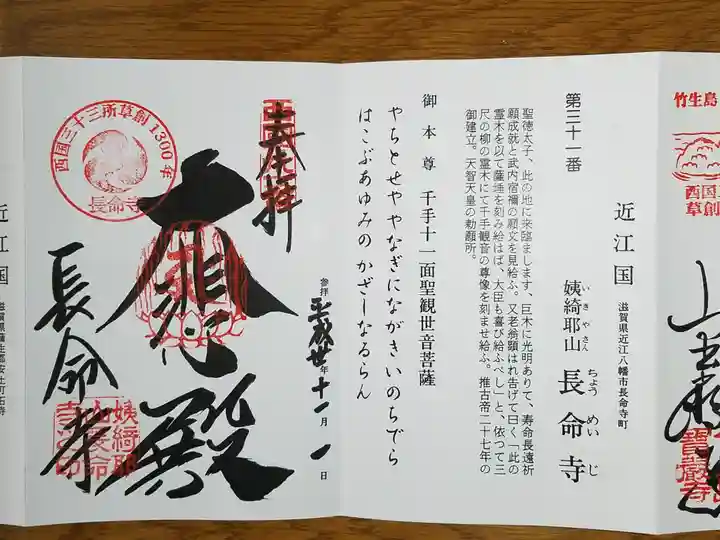 竹生島
西国
草創
近江国
滋賀県近江八幡市長命寺町
いきやさん
ちょうめいじ
姨綺耶山 長命寺
第三十一番
聖徳太子、此の地に来臨まします、巨木に光明ありて、寿命長遠祈
願成就と武内宿禰の願文を見給ふ。又老翁顕はれ告げて曰く「此の
霊木を以て薩埵を刻み給はば、大臣も喜び給ふべし」と、依つて三
尺の柳の霊木にて千手観音の尊像を刻ませ給ふ。推古帝二十七年の
御建立。天智天皇の勅願所。
御本尊 千手十一面聖観世音菩薩
やちとせや やなぎにながき いのちでら
はこぶあゆみの かざしなるらん
奉拝
参拝 平成卅年 十一月 一日
大悲殿
長命寺
西国三十三所草創1300年
長命寺
姨綺耶山長命寺之印
近江国
滋賀県蒲生郡安土町石寺